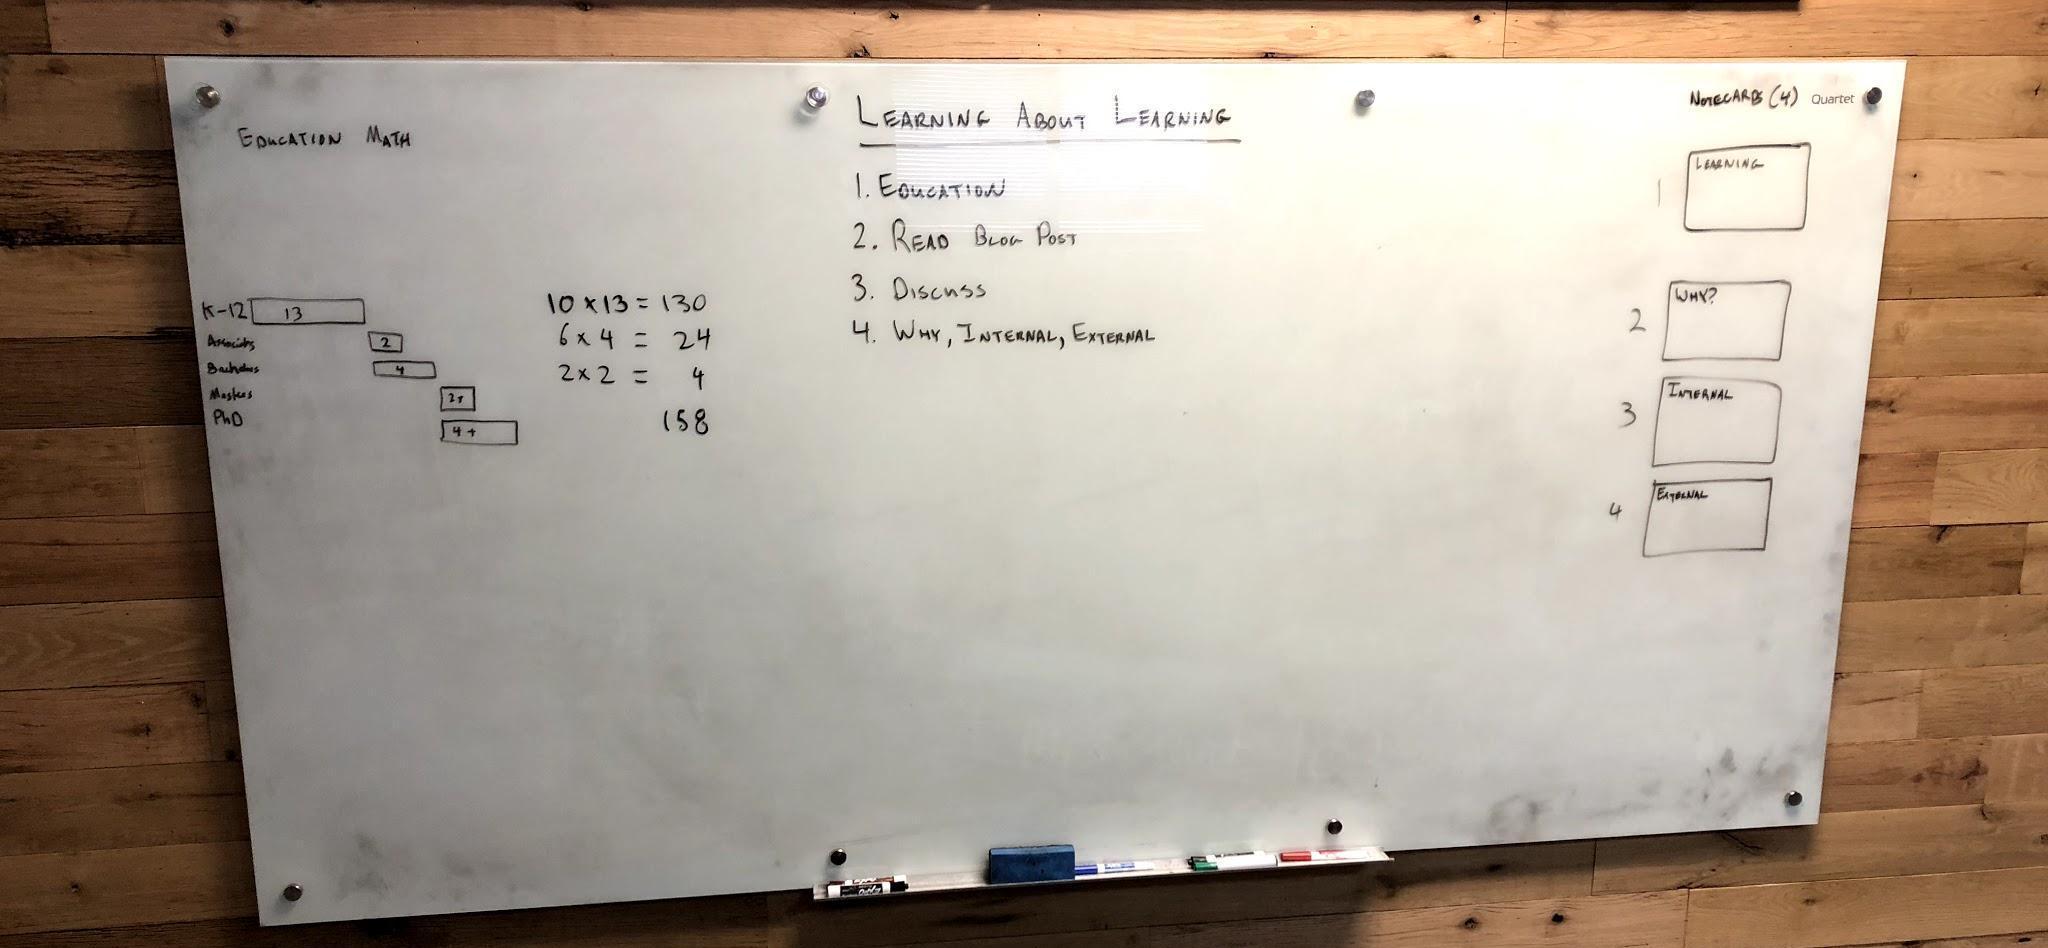 EDUCATION MATH
K-12 13
Associates 2
Bachelors 4
Masters 2+
PhD 4+
10 x 13 = 130
6 x 4 = 24
2 x 2 = 4
158
LEARNING ABOUT LEARNING
1. EDUCATION
2. READ BLOG POST
3. DISCUSS
4. WHY, INTERNAL, EXTERNAL
NOTECARDS (4) Quartet
1 LEARNING
2 WHY?
3 INTERNAL
4 EXTERNAL